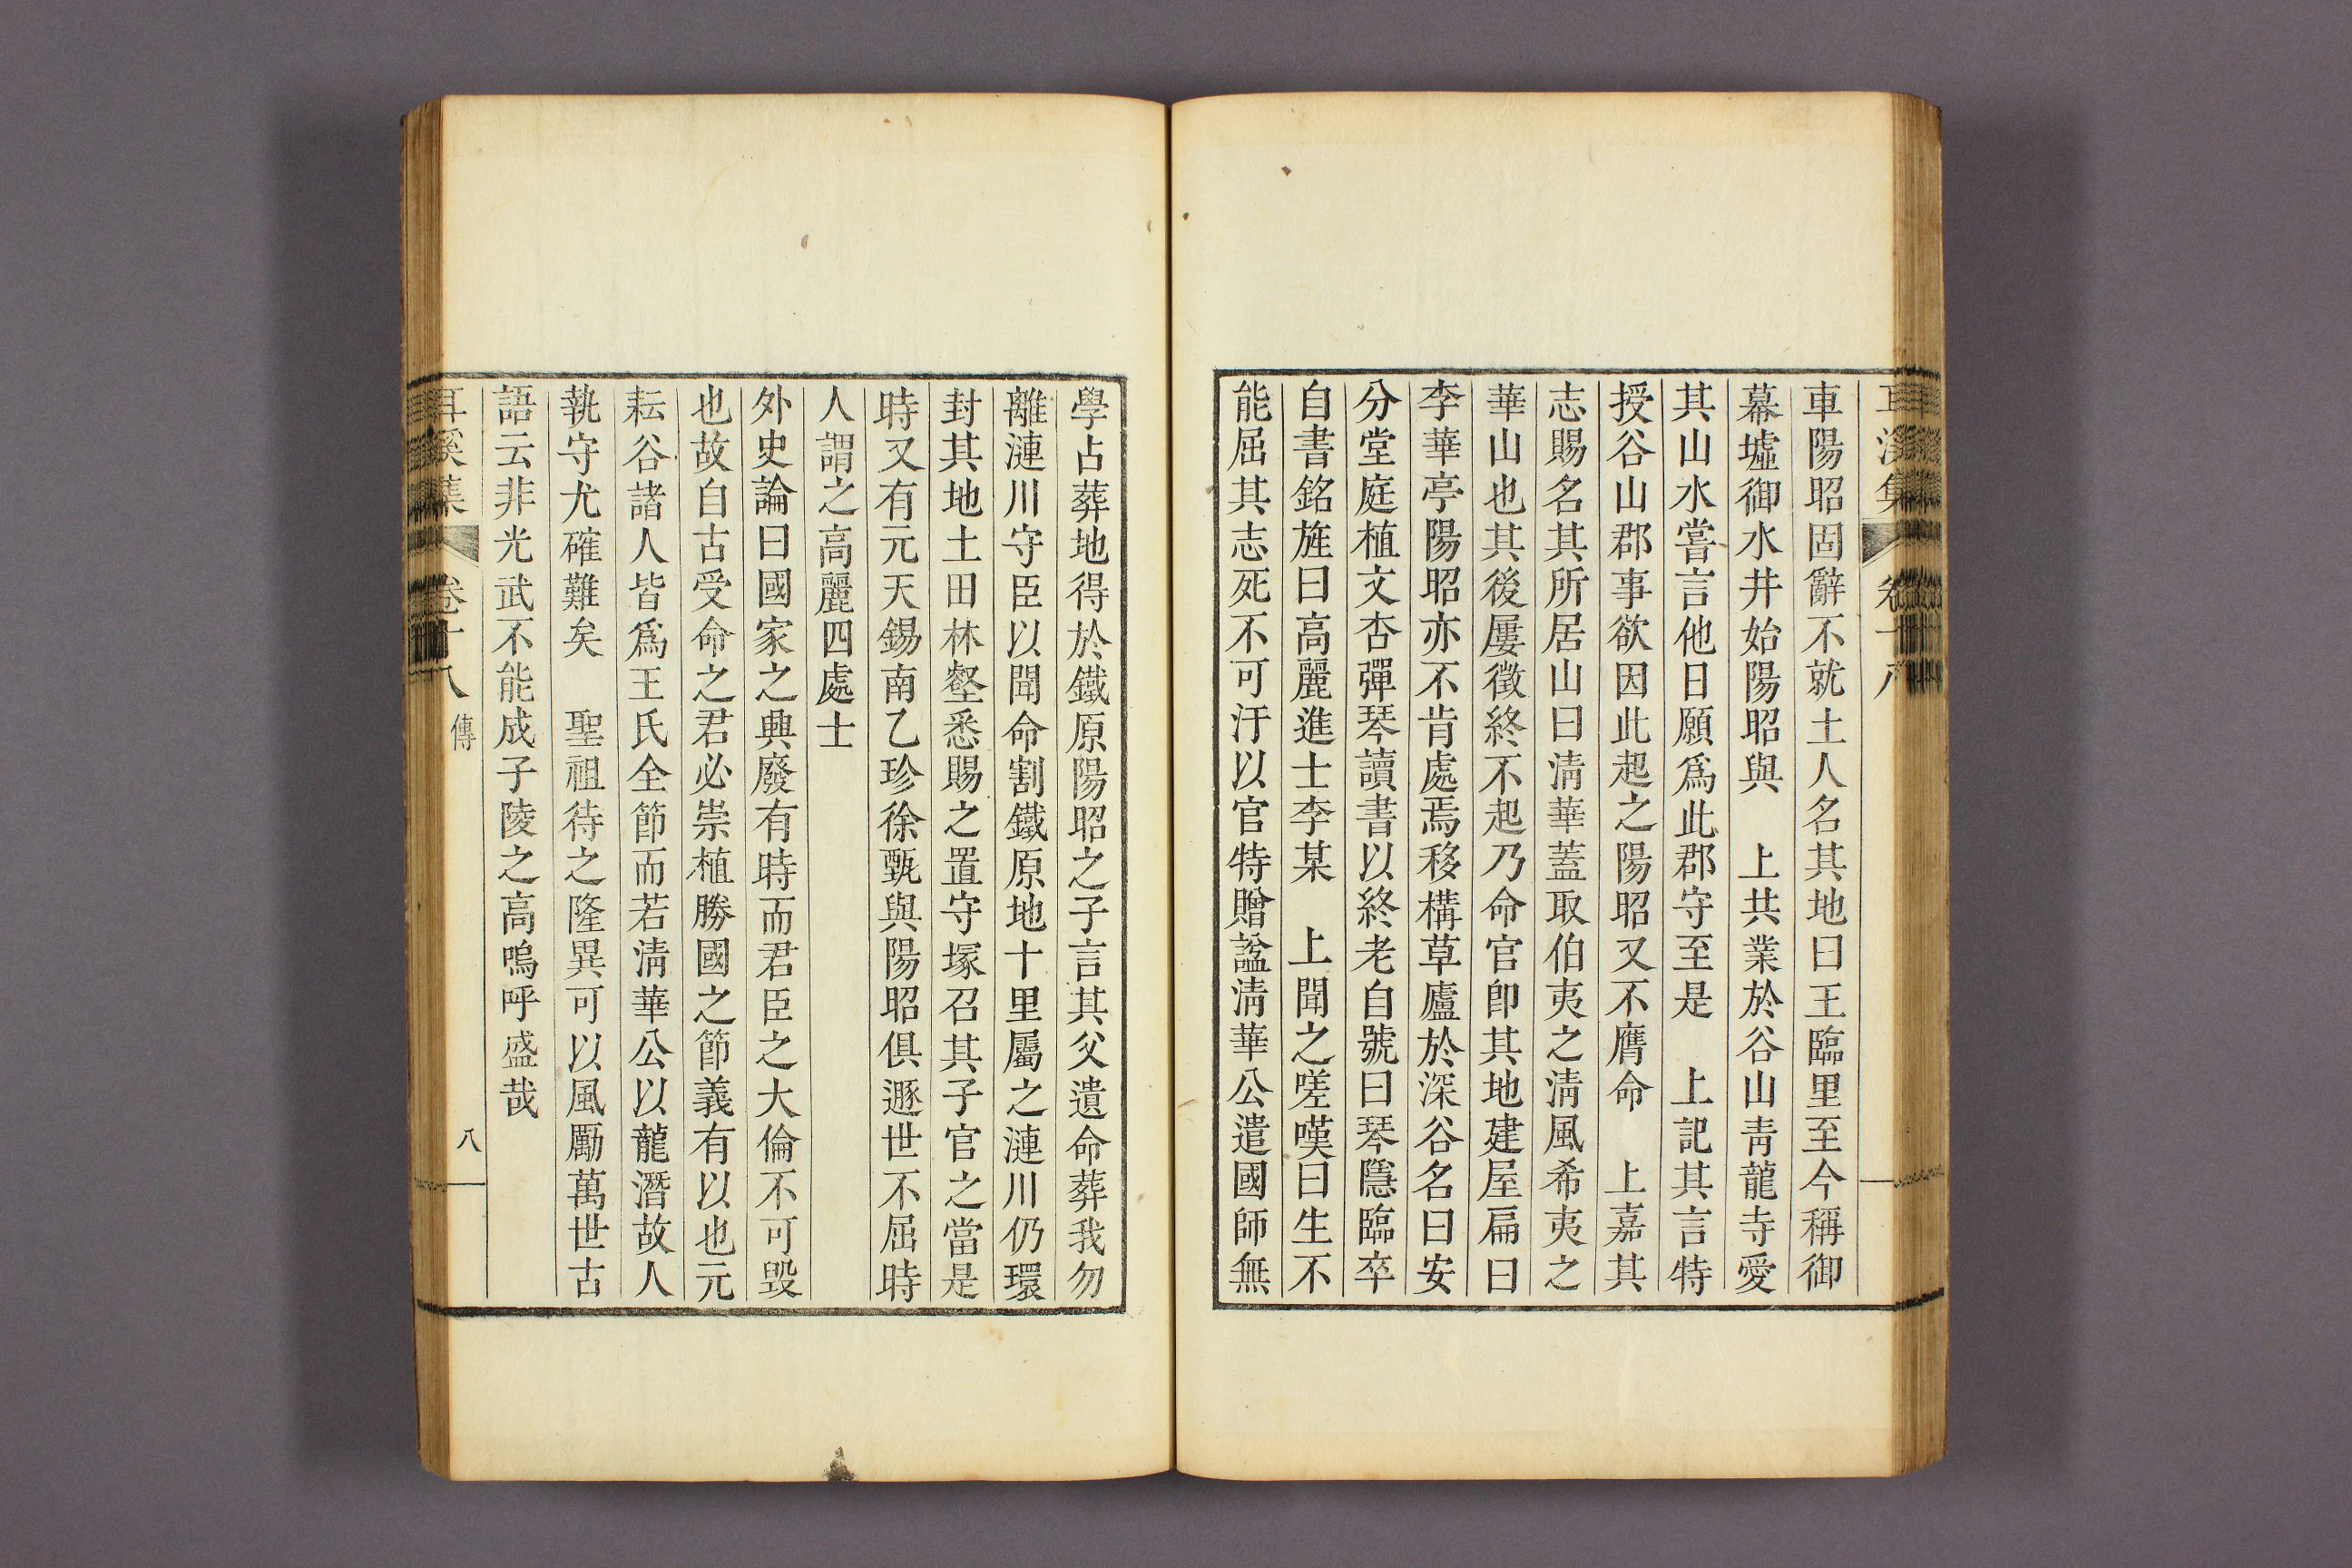 耳溪集 卷十八
車陽昭固辭不就土人名其地曰王臨里至今稱御
幕墟御水井始陽昭與 上共業於谷山青龍寺愛
其山水嘗言他日願爲此郡守至是 上記其言特
授谷山郡事欲因此起之陽昭又不膺命 上嘉其
志賜名其所居山曰淸華蓋取伯夷之淸風希夷之
華山也其後屢徵終不起乃命官卽其地建屋扁曰
李華亭陽昭亦不肯處焉移構草廬於深谷名曰安
分堂庭植文杏彈琴讀書以終老自號曰琴隱臨卒
自書銘旌曰高麗進士李某 上聞之嗟嘆曰生不
能屈其志死不可汙以官特贈諡淸華公遣國師無
學占葬地得於鐵原陽昭之子言其父遺命葬我勿
離漣川守臣以聞命割鐵原地十里屬之漣川仍環
封其地土田林壑悉賜之置守塚召其子官之當是
時又有元天錫南乙珍徐甄與陽昭俱遯世不屈時
人謂之高麗四處士
外史論曰國家之興廢有時而君臣之大倫不可毀
也故自古受命之君必崇植勝國之節義有以也元
耘谷諸人皆爲王氏全節而若淸華公以龍潛故人
執守尤確難矣 聖祖待之隆異可以風勵萬世古
語云非光武不能成子陵之高嗚呼盛哉
耳溪集 卷十八 傳 八